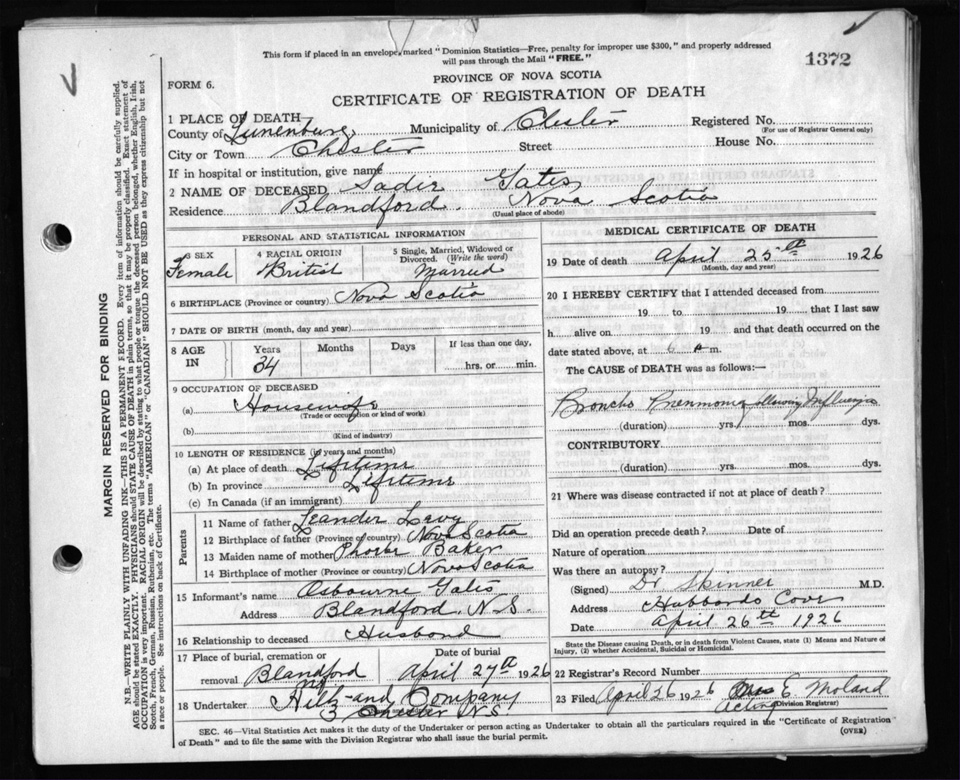 This form if placed in an envelope, marked "Dominion Statistics—Free, penalty for improper use $300," and properly addressed
will pass through the Mail "FREE."
1372
PROVINCE OF NOVA SCOTIA
FORM 6.
CERTIFICATE OF REGISTRATION OF DEATH
1 PLACE OF DEATH
County of Lunenburg Municipality of Chester Registered No.
(For use of Registrar General only)
City or Town Chester Street House No.
If in hospital or institution, give name
2 NAME OF DECEASED Sadie Gates
Residence Blandford. Nova Scotia
(Usual place of abode)
PERSONAL AND STATISTICAL INFORMATION
3 SEX 4 RACIAL ORIGIN 5 Single, Married, Widowed or
Divorced. (Write the word)
Female British Married
6 BIRTHPLACE (Province or country) Nova Scotia
7 DATE OF BIRTH (month, day and year)
8 AGE IN Years Months Days If less than one day,
34 hrs. or min.
9 OCCUPATION OF DECEASED
(a) Housewife
(Trade or occupation or kind of work)
(b)
(Kind of industry)
10 LENGTH OF RESIDENCE (in years and months)
(a) At place of death Lifetime
(b) In province Lifetime
(c) In Canada (if an immigrant)
Parents
11 Name of father Leander Levy
12 Birthplace of father (Province or country) Nova Scotia
13 Maiden name of mother Phoebe Baker
14 Birthplace of mother (Province or country) Nova Scotia
15 Informant's name Osbourne Gates
Address Blandford, N.S.
16 Relationship to deceased Husband
17 Place of burial, cremation or Date of burial
removal Blandford April 27th 1926
18 Undertaker and Company
Chester N.S.
MEDICAL CERTIFICATE OF DEATH
19 Date of death April 25th 1926
(Month, day and year)
20 I HEREBY CERTIFY that I attended deceased from
19 to 19 that I last saw
h alive on 19 and that death occurred on
date stated above, at 6 a m.
The CAUSE of DEATH was as follows:—
Broncho Pneumonia following Influenza
(duration) yrs. mos. dys.
CONTRIBUTORY
(duration) yrs. mos. dys.
21 Where was disease contracted if not at place of death?
Did an operation precede death? Date of
Nature of operation
Was there an autopsy?
(Signed) Dr Skinner M.D.
Address Hubbards Cove
Date April 26th 1926
State the Disease causing Death, or in death from Violent Causes, state (1) Means and Nature of
Injury, (2) whether Accidental, Suicidal or Homicidal.
22 Registrar's Record Number
23 Filed April 26 1926 Mrs E. Moland
Acting (Division Registrar)
SEC. 46—Vital Statistics Act makes it the duty of the Undertaker or person acting as Undertaker to obtain all the particulars required in the "Certificate of Registration
of Death" and to file the same with the Division Registrar who shall issue the burial permit. (OVER)
MARGIN RESERVED FOR BINDING
N.B.—WRITE PLAINLY WITH UNFADING INK—THIS IS A PERMANENT RECORD. Every item of information should be carefully supplied.
AGE should be stated EXACTLY. PHYSICIANS should STATE CAUSE OF DEATH in plain terms, so that it may be properly classified. Exact statement of
OCCUPATION is very important. RACIAL ORIGIN will be described by stating to what people or tongue the deceased person belonged, whether English, Irish,
Scotch, French, German, Russian, Ruthenian, etc. The terms "AMERICAN" or "CANADIAN" SHOULD NOT BE USED as they express citizenship but not
a race or people. See instructions on back of Certificate.